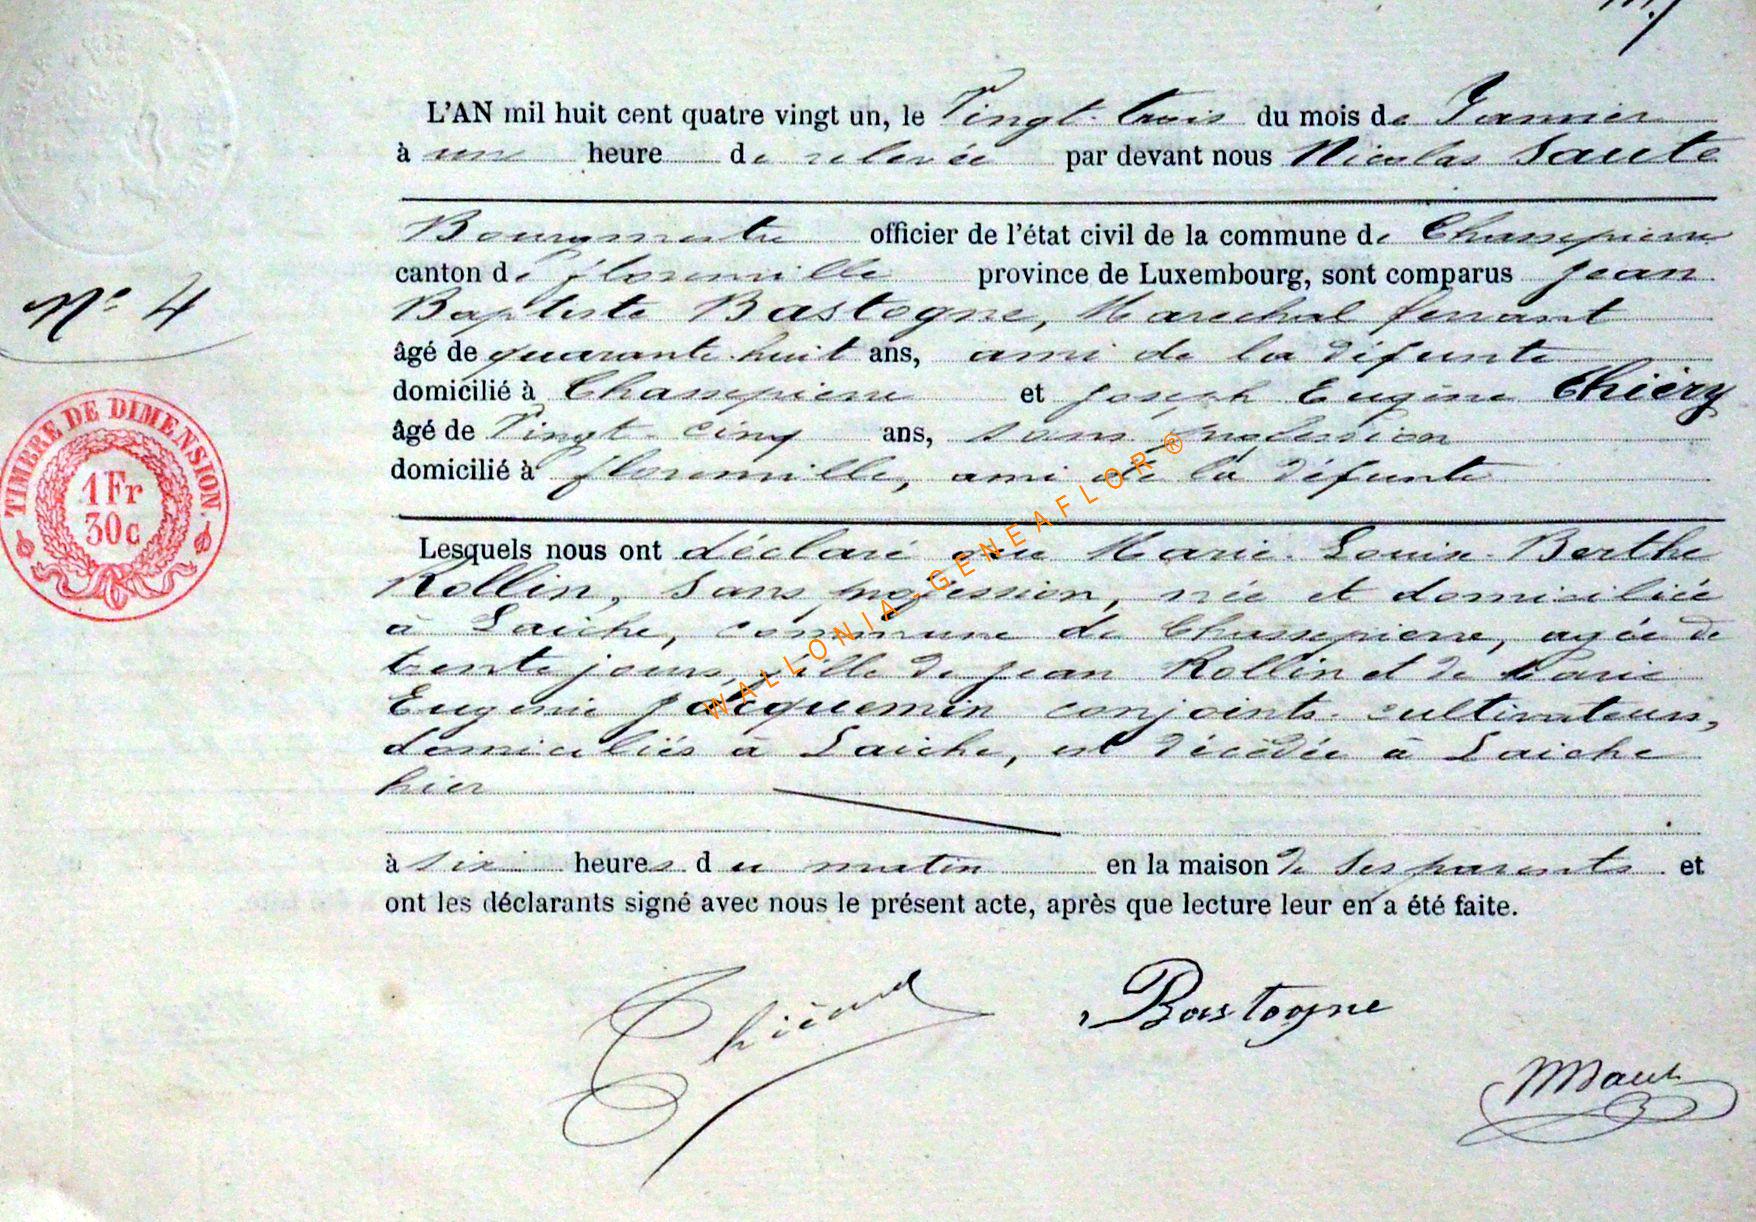 L'AN mil huit cent quatre vingt un, le Vingt-trois du mois de Janvier
à une heure de relevée par devant nous Nicolas Saute
Bourgmestre officier de l'état civil de la commune de Chassepierre
canton de florenville province de Luxembourg, sont comparus Jean
N° 4
Baptiste Bastogne, Marechal ferrant
âgé de quarante-huit ans, ami de la défunte
domicilié à Chassepierre et Joseph Eugène Thiéry
âgé de Vingt-cinq ans, sans profession
domicilié à florenville, ami de la défunte
TIMBRE DE DIMENSION
1 Fr
30c
Lesquels nous ont déclaré que Marie-Louise-Berthe
Rollin, sans profession, née et domiciliée
à Laiche, commune de Chassepierre, agée de
trente jours, fille de Jean Rollin et de Marie
Eugénie Jacquemin conjoints cultivateurs,
domiciliés à Laiche, est décédée à Laiche
hier
à six heures du matin en la maison de ses parents et
ont les déclarants signé avec nous le présent acte, après que lecture leur en a été faite.
Bastogne
WALLONIA-GENEAFLOR ®